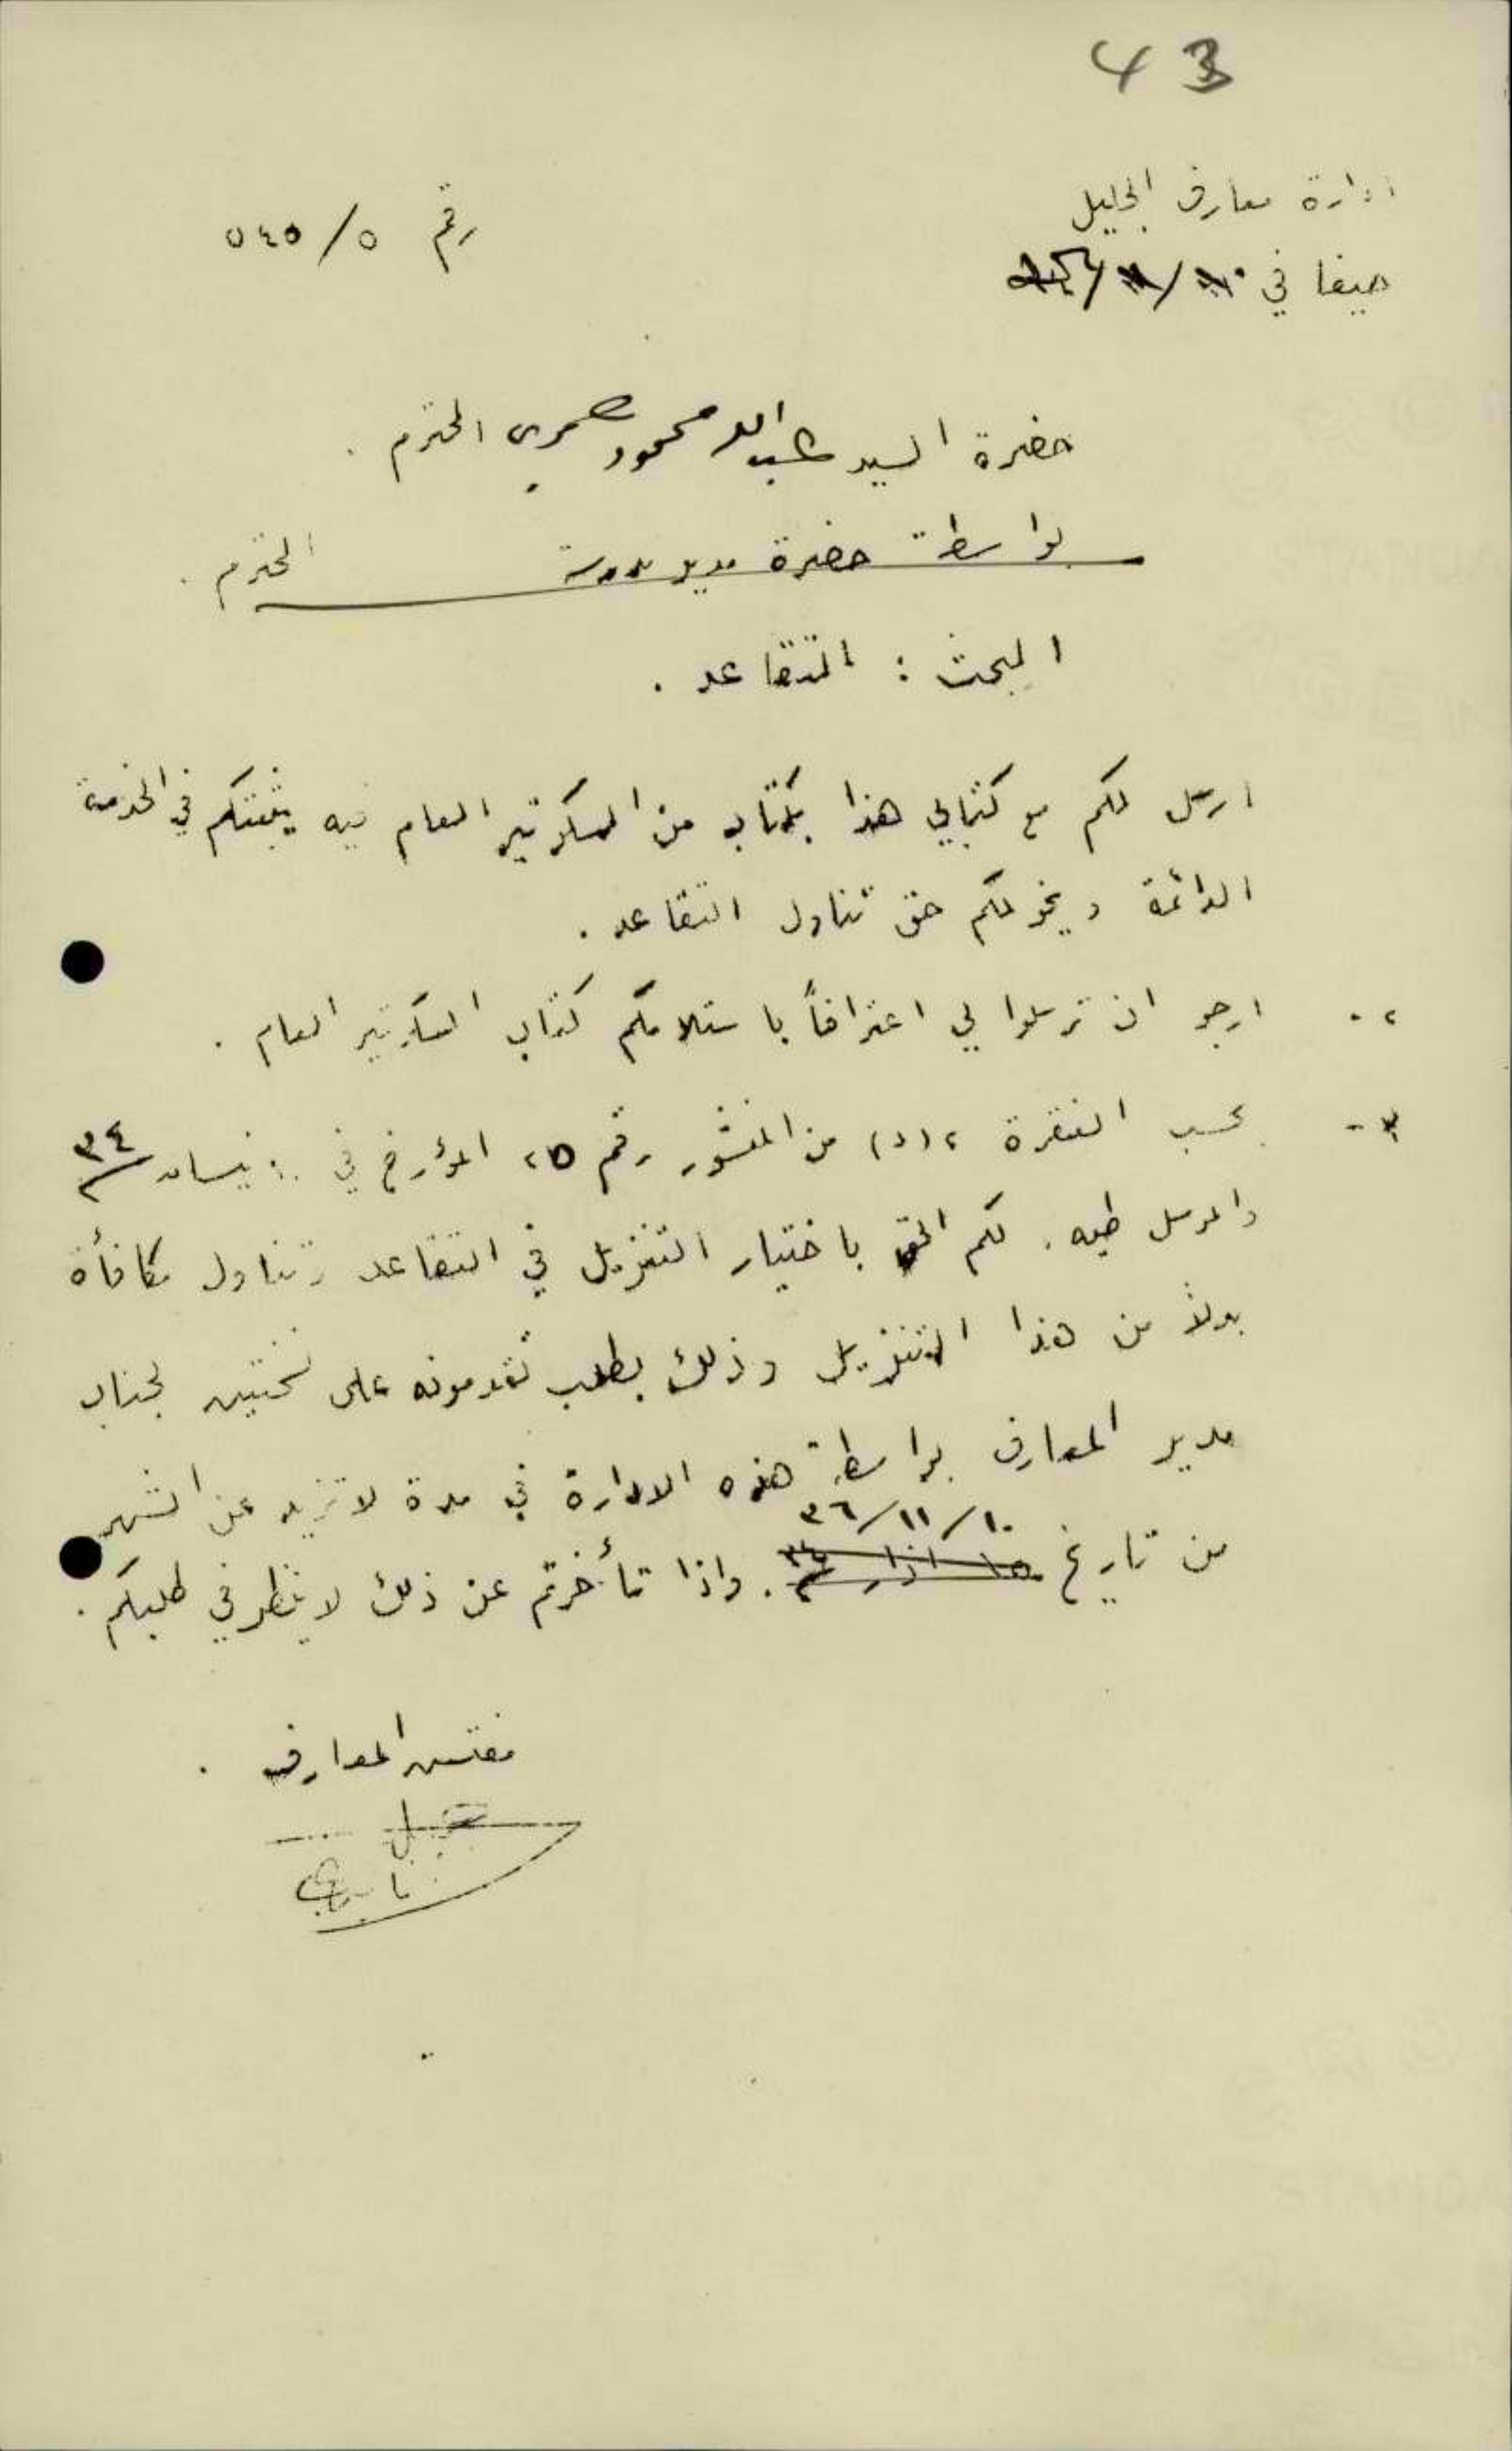 43
ادارة معارف الجليل
رقم ٥/٥٤٥
حيفا في
حضرة السيد عبد الله محمود المحترم .
بواسطة حضرة مدير مدرسة المحترم .
البحث : التقاعد .
ارسل لكم مع كتابي هذا كتاب من السكرتير العام فيه يثبتكم في الخدمة
الدائمة ويخولكم حق تناول التقاعد .
٢ - ارجو ان ترسلوا لي اعترافاً باستلامكم كتاب السكرتير العام .
٣ - بحسب الفقرة ٢ (د) من المنشور رقم ٢٥ المؤرخ في ١٠ نيسان ٣٤
والمرسل طيه . لكم الحق باختيار التنزيل في التقاعد وتناول مكافأة
بدلاً من هذا التنزيل وذلك بطلب تقدمونه على نسختين لجناب
مدير المعارف بواسطة هذه الادارة في مدة لا تزيد عن الشهر
١٠/١١/٣٦
من تاريخ ١٥ اذار ٣٤ . واذا تأخرتم عن ذلك لا ينظر في طلبكم .
مفتش المعارف .